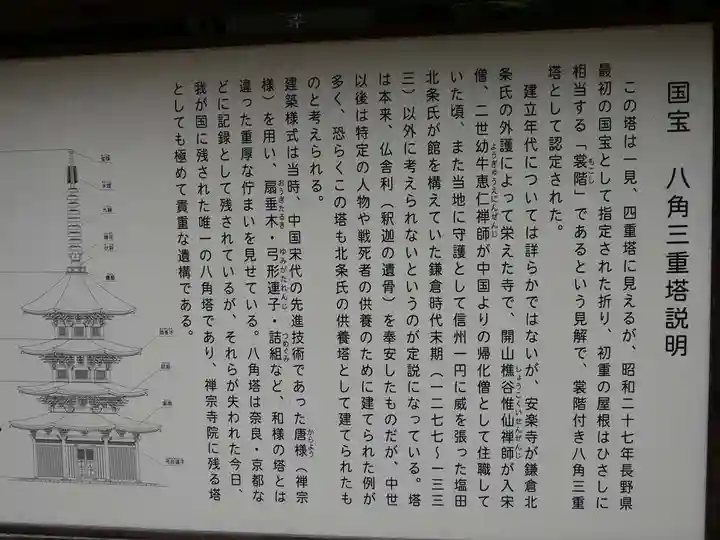 国宝　八角三重塔説明
この塔は一見、四重塔に見えるが、昭和二十七年長野県
最初の国宝として指定された折り、初重の屋根はひさしに
相当する「裳階」であるという見解で、裳階付き八角三重
もこし
塔として認定された。
建立年代については詳らかではないが、安楽寺が鎌倉北
条氏の外護によって栄えた寺で、開山樵谷惟仙禅師が入宋
しょうこくいせんぜんじ
僧、二世幼牛恵仁禅師が中国よりの帰化僧として住職して
ようぎゅうえにんぜんじ
いた頃、また当地に守護として信州一円に威を張った塩田
北条氏が館を構えていた鎌倉時代末期（一二七七～一三三
三）以外に考えられないというのが定説になっている。塔
は本来、仏舎利（釈迦の遺骨）を奉安したものだが、中世
以後は特定の人物や戦死者の供養のために建てられた例が
多く、恐らくこの塔も北条氏の供養塔として建てられたも
のと考えられる。
建築様式は当時、中国宋代の先進技術であった唐様（禅宗
からよう
様）を用い、扇垂木・弓形連子・詰組など、和様の塔とは
おうぎたるき
ゆみがたれんじ
つめぐみ
違った重厚な佇まいを見せている。八角塔は奈良・京都な
どに記録として残されているが、それらが失われた今日、
我が国に残された唯一の八角塔であり、禅宗寺院に残る塔
としても極めて貴重な遺構である。